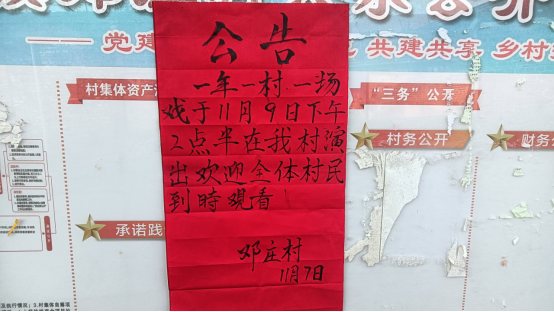 公告
一年一村一场
戏于11月9日下午
2点半在我村演
出欢迎全体村民
到時观看
邓庄村
11月7日
党建
共建共享 乡村
村集体资产
“三务”公开
村务公开
财务
承诺践